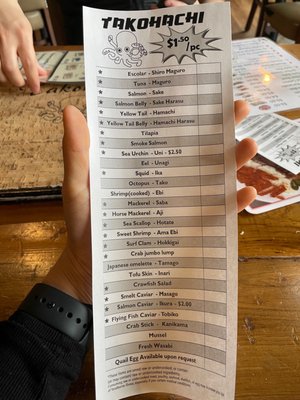 TAKOHACHI
$1.50
/pc
★ Escolar - Shiro Maguro
★ Tuna - Maguro
★ Salmon - Sake
★ Salmon Belly - Sake Harasu
★ Yellow Tail - Hamachi
★ Yellow Tail Belly - Hamachi Harasu
★ Tilapia
★ Smoke Salmon
★ Sea Urchin - Uni - $2.50
Eel - Unagi
★ Squid - Ika
Octopus - Tako
Shrimp(cooked) - Ebi
★ Mackerel - Saba
★ Horse Mackerel - Aji
★ Sea Scallop - Hotate
★ Sweet Shrimp - Ama Ebi
★ Surf Clam - Hokkigai
★ Crab jumbo lump
Japanese omelette - Tamago
Tofu Skin - Inari
Crawfish Salad
★ Smelt Caviar - Masago
★ Salmon Caviar - Ikura - $2.00
★ Flying Fish Caviar - Tobiko
Crab Stick - Kanikama
Mussel
Fresh Wasabi
Quail Egg Available upon request